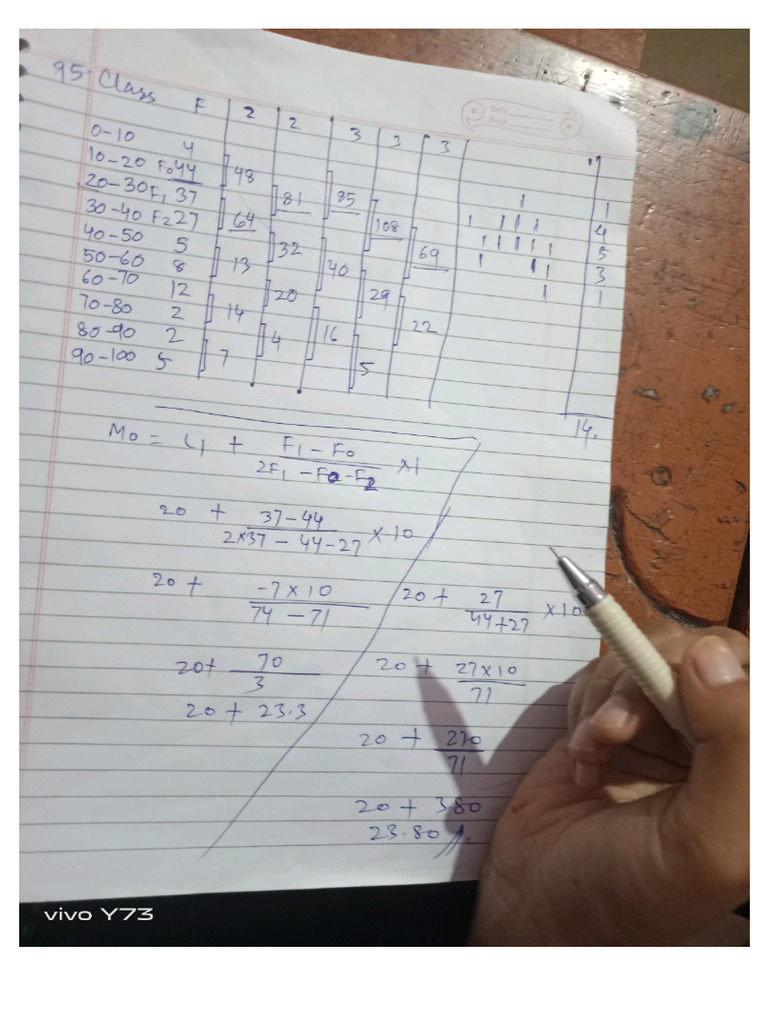 95. Class F 2 2 3 3 3
0-10 4
10-20 F0 44 48 1 1
20-30 F1 37 81 85 1 1 1 1 4
30-40 F2 27 64 108 1 1 1 1 1 5
40-50 5 32 69 1 1 1 3
50-60 8 13 40 1 1
60-70 12 20 29
70-80 2 14 16 22
80-90 2 4
90-100 5 7 5
14.
Mo = L1 + F1 - F0 / 2F1 - F0 - F2 × i
20 + 37 - 44 / 2×37 - 44 - 27 × 10
20 + -7 × 10 / 74 - 71
20 + 70 / 3
20 + 23.3
20 + 27 / 44+27 × 10
20 + 27×10 / 71
20 + 270 / 71
20 + 3.80
23.80
vivo Y73